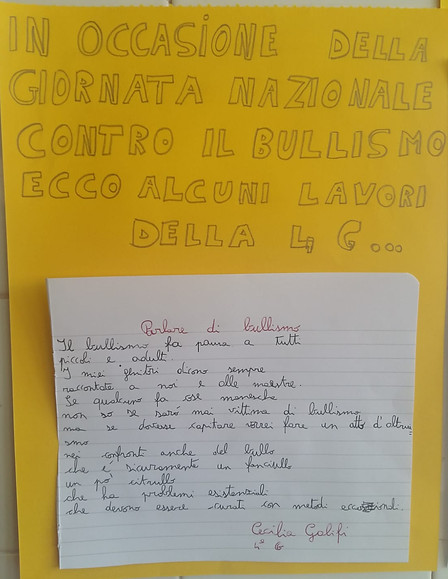 IN OCCASIONE DELLA
GIORNATA NAZIONALE
CONTRO IL BULLISMO
ECCO ALCUNI LAVORI
DELLA 4 G...
Parlare di bullismo
Il bullismo fa paura a tutti
piccoli e adulti.
I miei genitori dicono sempre
raccontate a noi e alle maestre.
Se qualcuno fa cose manesche
non so se sarò mai vittima di bullismo
ma se dovesse capitare vorrei fare un atto d'altrui
smo
nei confronti anche del bullo
che è sicuramente un fanciullo
un po' citrullo
che ha problemi esistenziali
che devono essere curati con metodi eccezionali.
Cecilia Galifi
4ª G